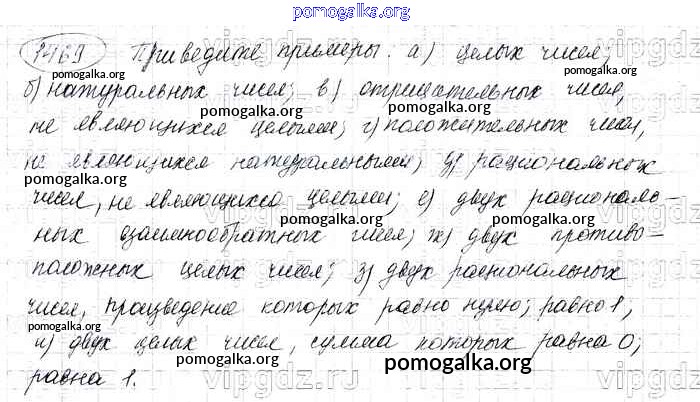 pomogalka.org
1469 Приведите примеры: а) целых чисел;
pomogalka.org pomogalka.org
б) натуральных чисел; в) отрицательных чисел,
pomogalka.org
не являющихся целыми; г) положительных чисел,
не являющихся натуральными; д) рациональных
pomogalka.org
чисел, не являющихся целыми; е) двух рациональ-
pomogalka.org pomogalka.org
ных взаимнообратных чисел; ж) двух противо-
положных целых чисел; з) двух рациональных
чисел, произведение которых равно нулю; равно 1;
pomogalka.org pomogalka.org
и) двух целых чисел, сумма которых равна 0;
pomogalka.org
равна 1.
vipgdz.ru